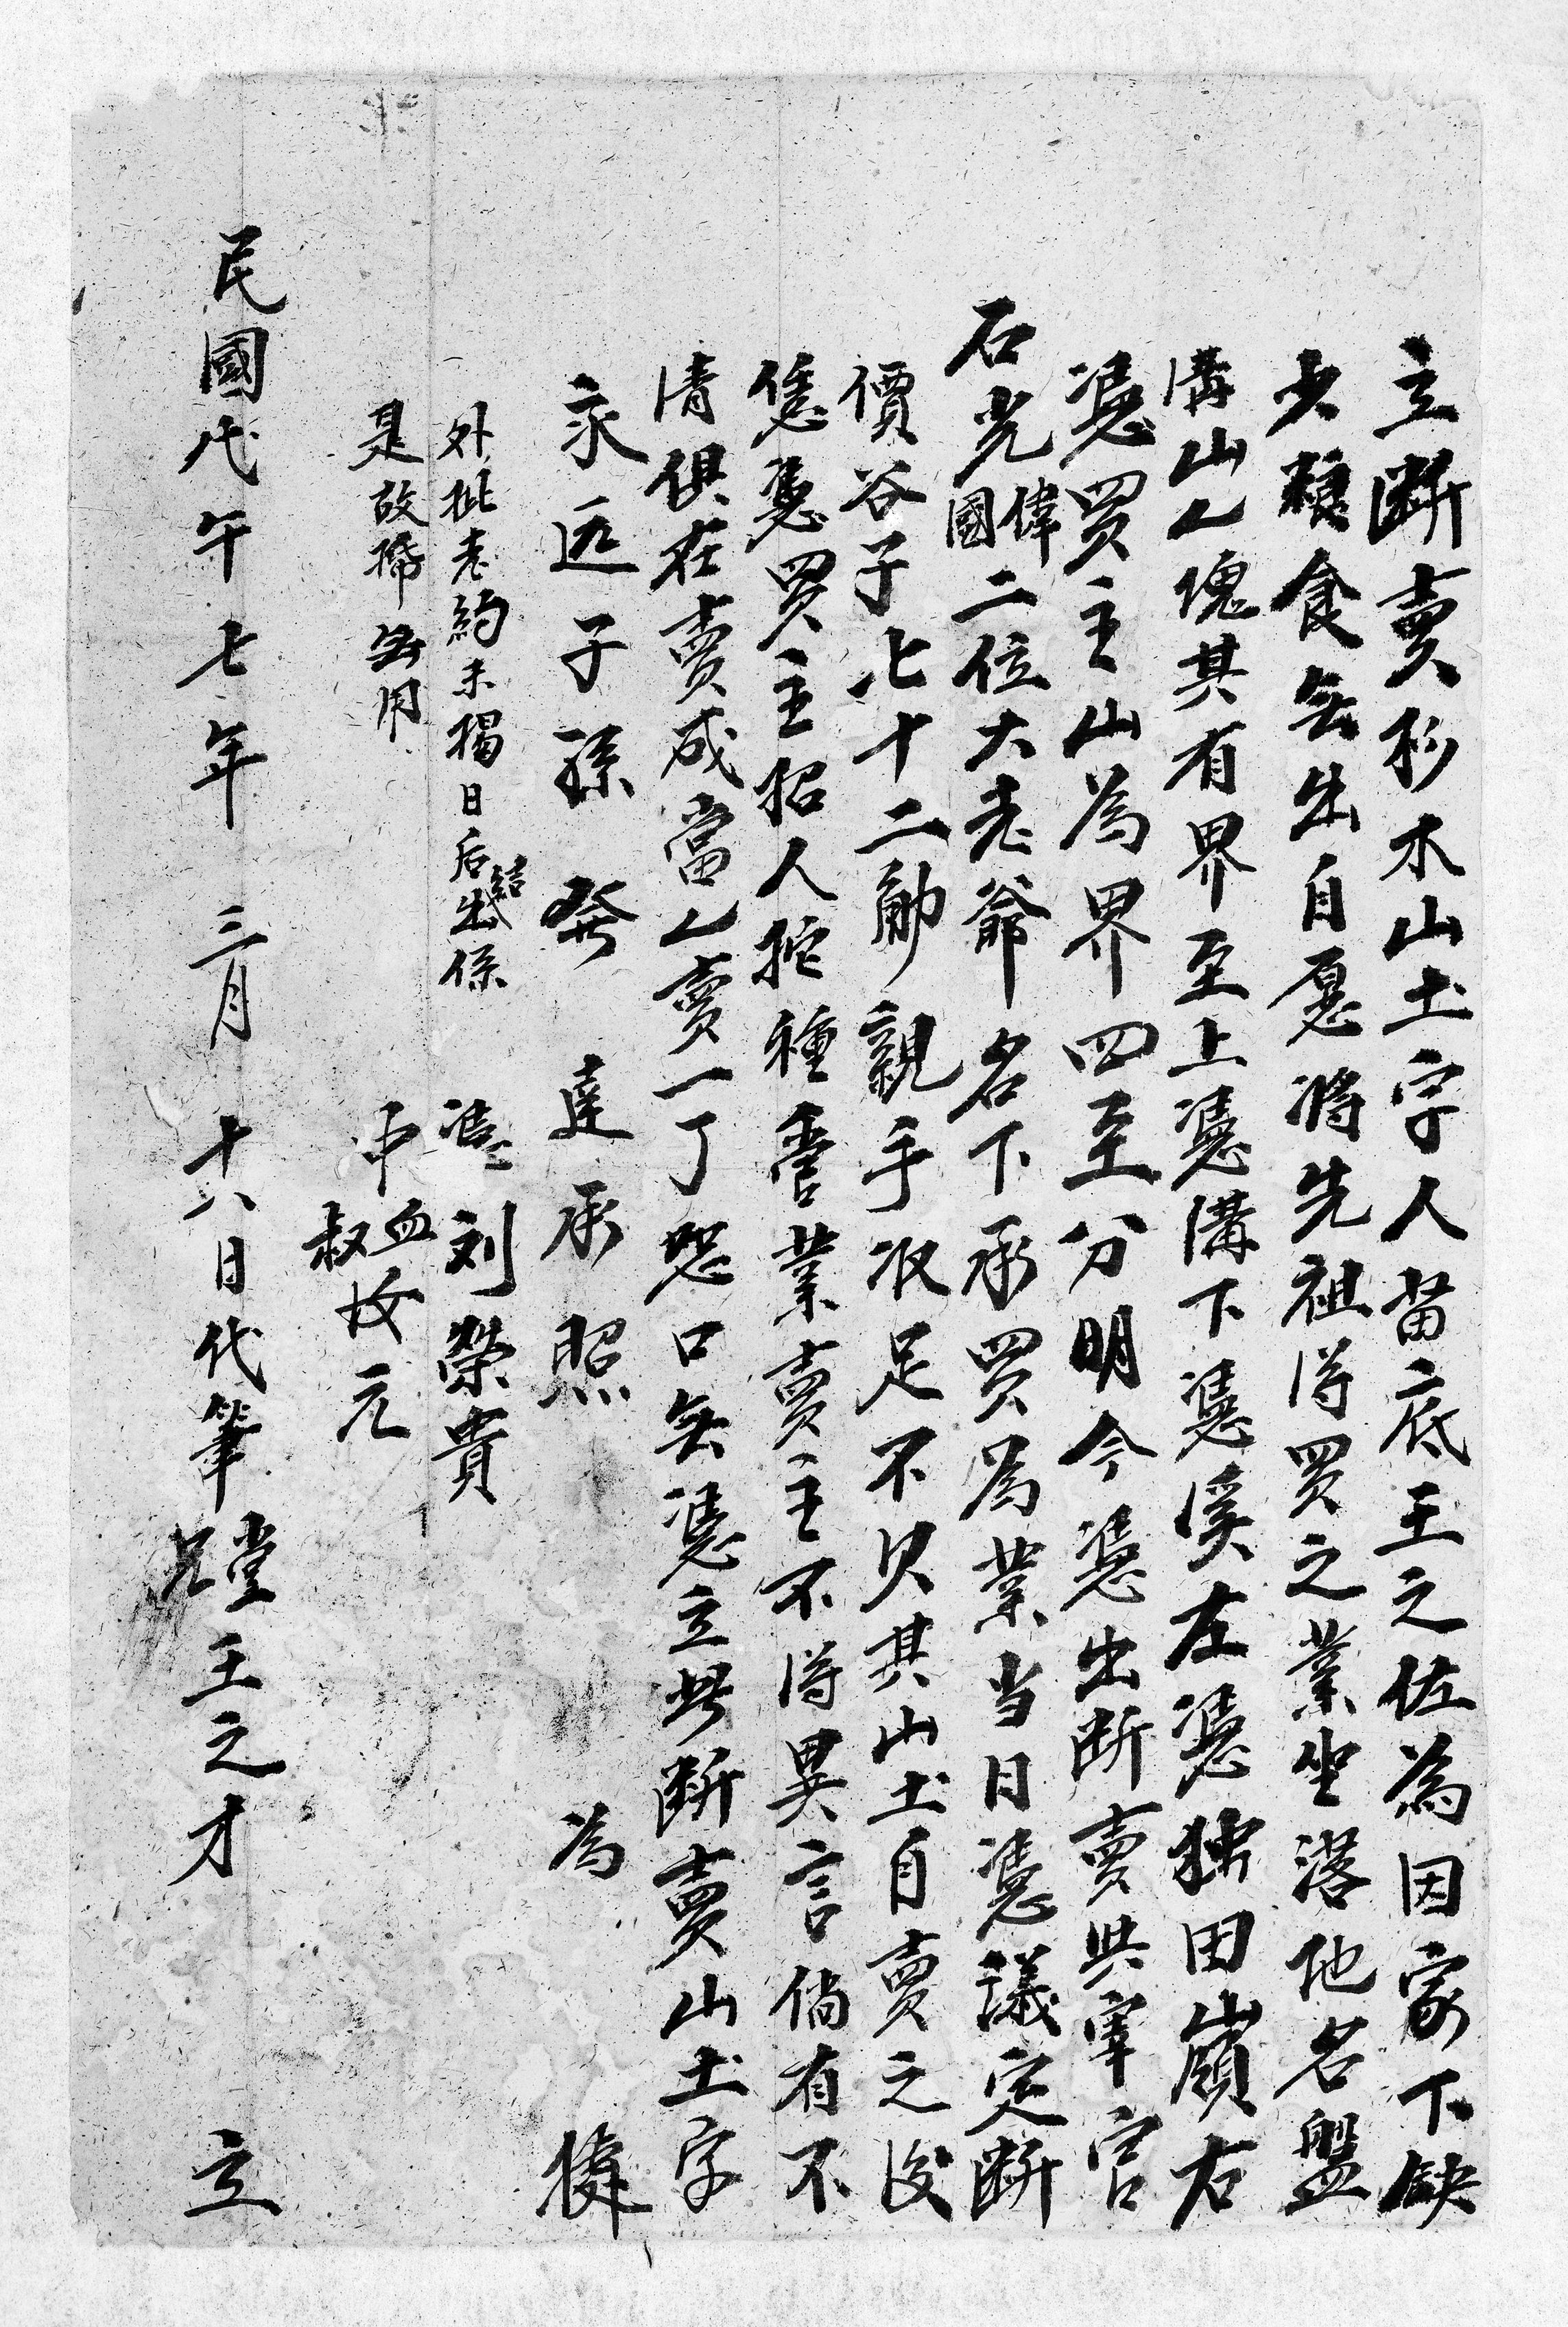 立断賣杉木山土字人苗底王之佐為因家下缺
少粮食無出自愿將先祖得買之業坐落地名盤
溝山乙塊其有界至上憑溝下憑溪左憑獨田嶺右
憑買主山為界四至分明今憑出断賣與宰官
石光偉國二位大老爺名下承買為業当日憑議定断
價谷子七十二觔親手收足不欠其山土自賣之後
恁憑買主招人挖種晋業賣主不得異言倘有不
清俱在賣成當乙賣一了恐口無憑立此断賣山土字
永远子孫發達承照為據
外批老約未揭日后結出係
是故帋無用
憑刘榮貴
中血叔汝元
民國戊午七年三月十八日代筆堂兄王之才立